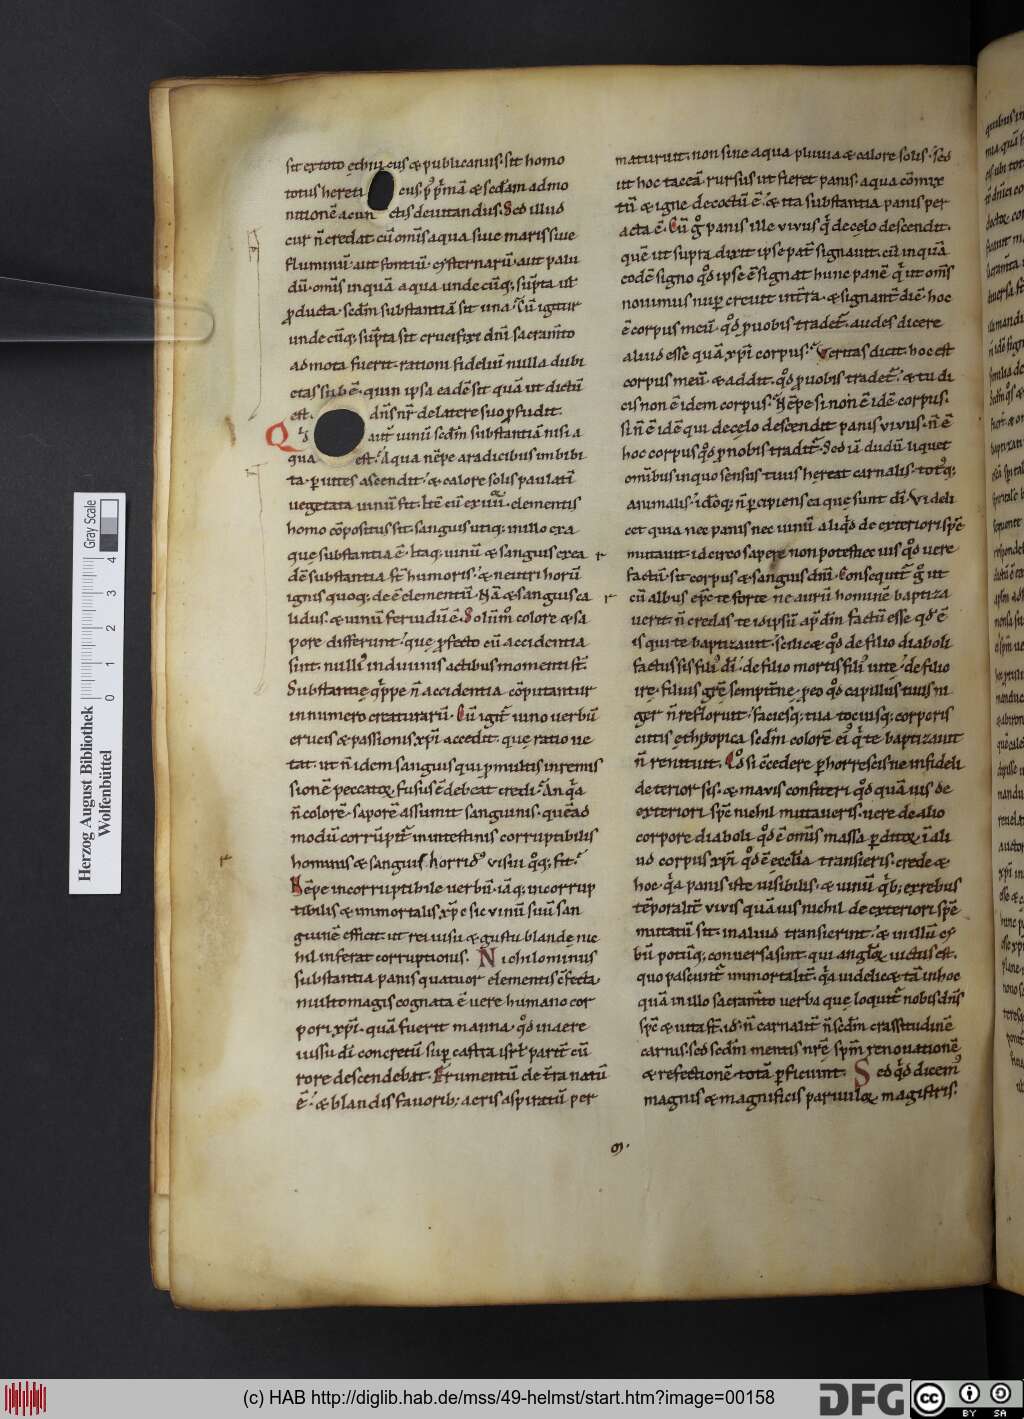 sit ex toto ethnicus & publicanus. sit homo
totus hereti cus p̾ p̾mā & sc̄dam admo
nitionē a cun ctis deuitandus. Sed illud
cur n̄ credat. cū om̄is aqua siue maris siue
fluminū aut fontiū. cysternarū. aut palu
dū. om̄is inquā aqua undecūq; sūpta ut
ꝓducta. sc̄dm substantiā sit una. Cū igitur
undecūq; sūpta sit crucifixi dn̄i sacram̄to
admota fuerit. rationi fideliū nulla dubi
etas sub ē. quin ipsa eadē sit quā ut dictū
est. dn̄s nr̄ de latere suo ꝓfudit.
Q id aut̄ uinū sc̄dm substantiā nisi a
qua est. Aqua nēpe a radicibus imbibi
ta. ꝑ uites ascendit. & calore solis paulatī
uegetata uinū fit. Itē cū ex elementis
homo cōpositus sit. sanguis utiq; in illo ex a
que substantia ē. Itaq; uinū & sanguis ex ea
dē substantia st̄ humoris. & neutri horū
ignis quoq; deē elementū. Nā & sanguis ca
lidus. & uinū feruidū ē. Solūm̊ colore & sa
pore differunt. que ꝓfecto cū accidentia
sint. nulli in diuinis actibus momenti st̄.
Substantię q̾ppe n̄ accidentia cōputantur
in numero creaturarū. Cū igit̄ uino uerbū
crucis & passionis xp̄i accedit. que ratio ue
tat. ut n̄ idem sanguis qui ꝓ multis in remis
sionē peccatoꝝ fusus ē debeat credi. An q̾a
n̄ colorē. saporē assumit sanguinis. quēad
modū corrūpit̄ in intestinis corruptibilis
hominis & sanguis. horrid᷒ uisu q̊q; fit.
Nēpe incorruptibile uerbū. iāq; incorrup
tibilis & immortalis xp̄c sic vinū suū san
guinē efficit. ut rei uisu & gustu blandę nic
hil inferat corruptionis. Nichilominus
substantia panis quatuor elementis cf̄ecta.
multo magis cognata ē uere humano cor
pori xp̄i. quā fuerit manna. q̊d in aere
iussu dī concretū suꝑ castra isrl̄ parit̄ cū
rore descendebat. Frumentū de tr̄a natū
ē. & blandis fauorib; aeris aspiratū per
maturuit. non sine aqua pluuia & calore solis. sed
ut hoc taceā. rursus ut fieret panis. aqua cōmix
tū. & igne decoctū ē. & ita substantia panis per
acta ē. Cū g̊ panis ille vivus q̾ de cęlo descendit.
quē ut supra dixit ipse pat̄ signauit. cū inquā
eodē signo q̊d ipse ē signat hunc panē q̾ ut om̄s
nouimus nuꝑ creuit in tr̄ra. & signant̄ diē. hoc
ē corpus meū. q̊d ꝓ uobis tradet̄. audes dicere
aliud esse quā xp̄i corpus. Veritas dicit. hoc est
corpus meū. & addit. q̊d ꝓ uobis tradet̄. & tu di
cis non ē idem corpus. Nēpe si non ē idē corpus.
si n̄ ē idē qui de cęlo descendit panis vivus. n̄ ē
hoc corpus q̊d ꝓ nobis tradit̄. Sed iā dudū liquet
omībus in quo sensus tuus hereat carnalis. tot᷒q;
animalis. idōq; n̄ ꝑcipiens ea que sunt dī. Videli
cet quia nec panis nec uinū aliq̾d de exteriori spc̄e
mutauit. idcirco sapere non potest. nec uis q̊d uere
factū sit corpus & sanguis dn̄i. Consequit̄ g̊ ut
cū albus epc̄ te forte ne aurū hominē baptiza
uerit. n̄ credas te id ipsū ap̄ dm̄ factū esse qd̄ ē
is qui te baptizauit. scilicet q̊d de filio diaboli
factus sis fili᷒ dī. de filio mortis fili᷒ uite. de filio
irę. filius grē sempitn̄e. ꝓ eo q̊d capillus tuus ni
ger n̄ refloruit. faciesq; tua tociusq; corporis
cutis ethyopica sc̄dm colorē ei᷒ q̾ te baptizauit
n̄ renituit. Q̊d si c̄cedere ꝑhorrescis ne infideli
deterior sis. & mauis confiteri q̊d quā uis de
exteriori spc̄e nichil mutaueris. uere de alio
corpore diaboli q̊d ē om̄is massa ꝑditoꝝ ī ali
ud corpus xp̄i q̊d ē ecclīa transieris. crede &
hoc. q̾a panis iste uisibilis. & uinū q̾b; ex rebus
tēporalit̄ vivis quā uis nichil de exteriori spc̄e
mutatū sit. in aliud transierint. & in illū cy
bū potūq; conuersa sint. qui angl̄oꝝ uictus est.
quo pascunt̄ immortalit̄. q̾a uidelicet tā in hoc
quā in illo sacram̄to uerba que loquit̄ nobis dn̄s
spc̄ & uita st̄. id n̄ carnalit̄ n̄ sc̄dm crassitudinē
carnis. sed sc̄dm mentis nr̄ę spm̄ renouationē
& refectionē totā ꝑficiunt. Sed q̾d dicem᷒
magnis & magnificis paruuloꝝ magistris.
Herzog August Bibliothek
Wolfenbüttel
Gray Scale
0 1 2 3 4
(c) HAB http://diglib.hab.de/mss/49-helmst/start.htm?image=00158
DFG
cc BY SA